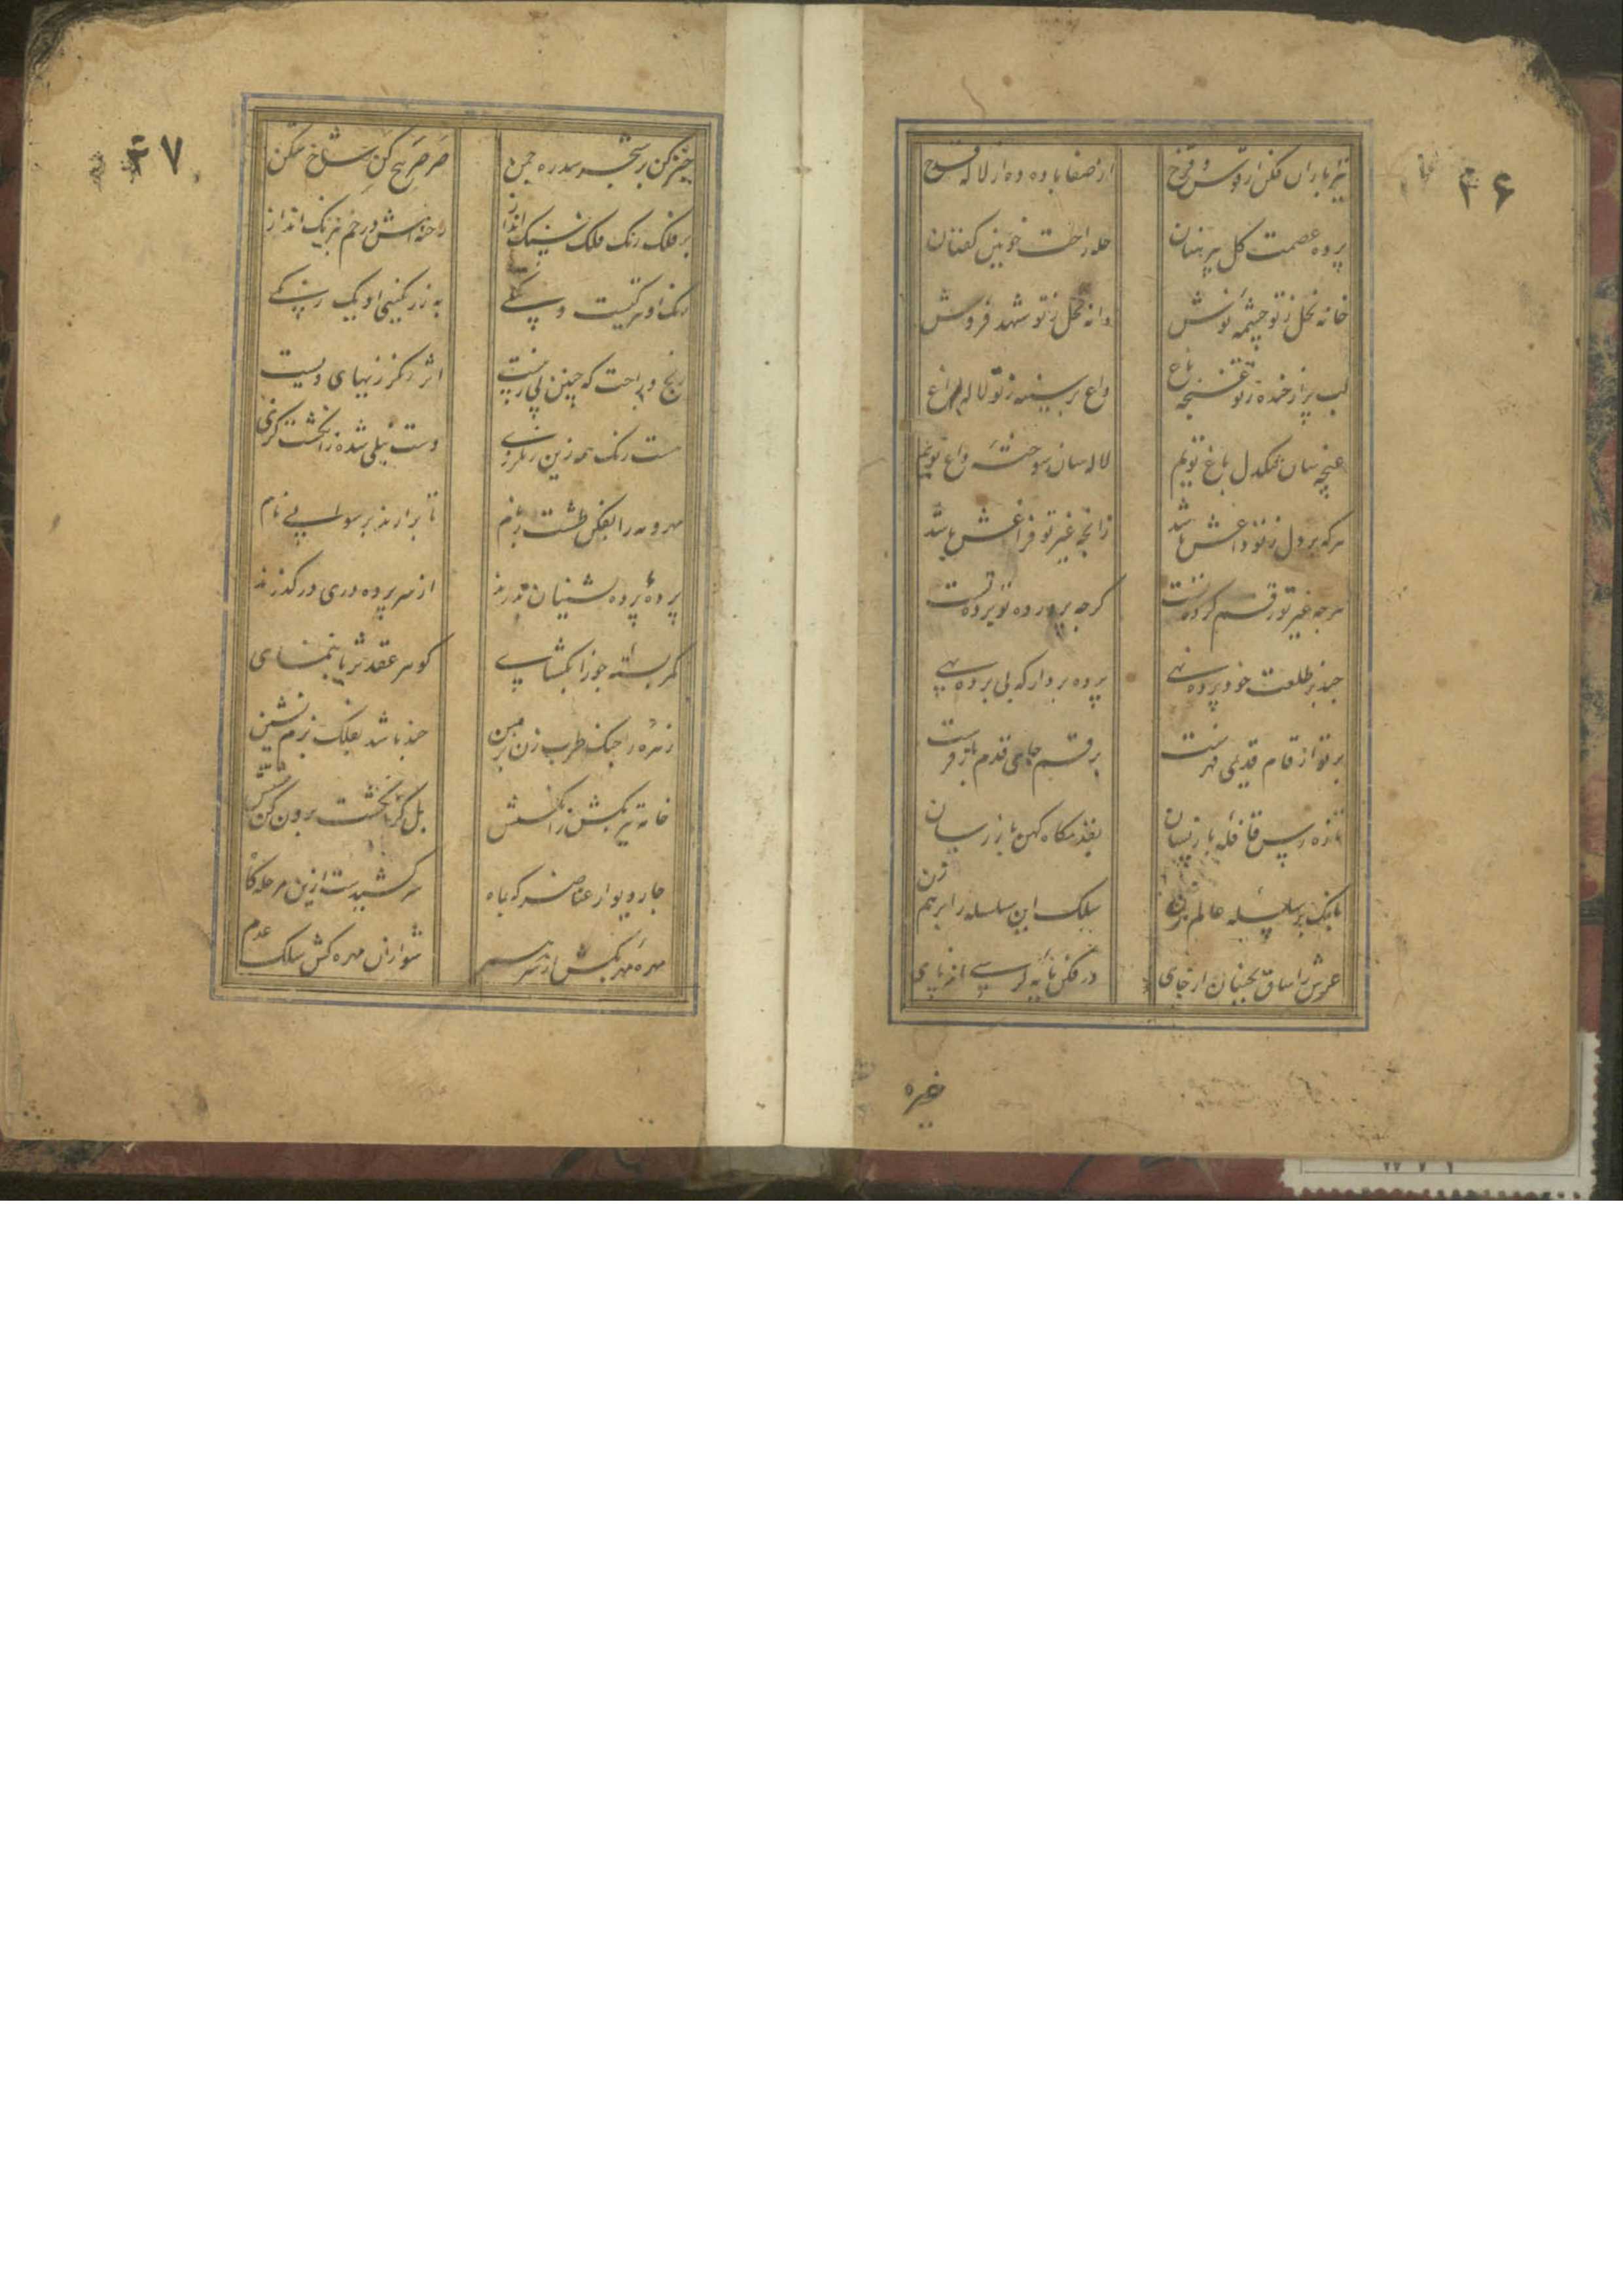 ۲۶
تیرباران فکن از قوس و قزح از صفا باده ده از لاله قدح
پرده عصمت گل پیرهنان حله راحت خونین کفنان
خانه نحل ز تو چشمه نوش دانه نخل ز تو شهد فروش
لب پر از خنده ز تو غنچه باغ داغ بر سینه ز تو لاله راغ
غنچه سان تنگدل باغ توییم لاله سان سوخته داغ توییم
هرکه بر دل ز تو داغش باشد ز آنچه غیر تو فراغش باشد
هرچه غیر تو رقم کرده تست گرچه پرورده تو پرده تست
چند بر طلعت خود پرده نهی پرده بردار که بی پرده بهی
تازه رس قافله بازپسان بقدمگاه کهن باز رسان
بانگ بر سلسله عالم زن سلک این سلسله را بر هم زن
عرش را ساق بجنبان از جای در فکن پایه کرسی از پای
خیره
۲۷
خیز کن بر شجر سدره چمن صرصر هیچ کن شاخ شکن
بر فلک رنگ فلک سنگ انداز رخنه‌اش در خم نیرنگ انداز
رنگ او هر نیست بسی به ز رنگینی او یک رنگی
رنج و راحت که چنین پی در پیست اثر گرمیهای ویست
دست نیلی شده ز انگشت گزی
مهر و مه را بفکن طشت ز بام تا برآرند برسوایی نام
پرده پرده نشینان ندرند از سر پرده دری در گذرند
کمر بسته جوزا بگشای گوهر عقد ثریا بنمای
زهره را چنگ طرب زن بزمین چند باشد بفلک بزم نشین
چار دیوار عناصر که بماه سر کشیدست ازین مرحله گاه
مهره مهره بکش از سر شو از آن مهره کش سلک عدم